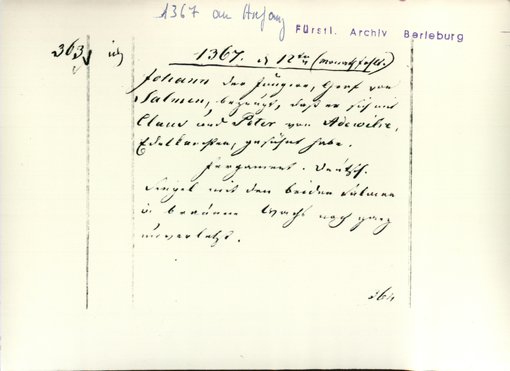 1367 am Anfang
Fürstl. Archiv Berleburg
363
1367. d 12ten (Monat fehlt.)
Johann der Jüngere, Graf von
Salmen, bezeugt, daß er sich mit
Claus und Peter von Adewilre,
Edelknechten, gesühnt habe.
Pergament. Deutsch.
Siegel mit den beiden Salmen
in braunem Wachs noch ganz
unverletzt.
364